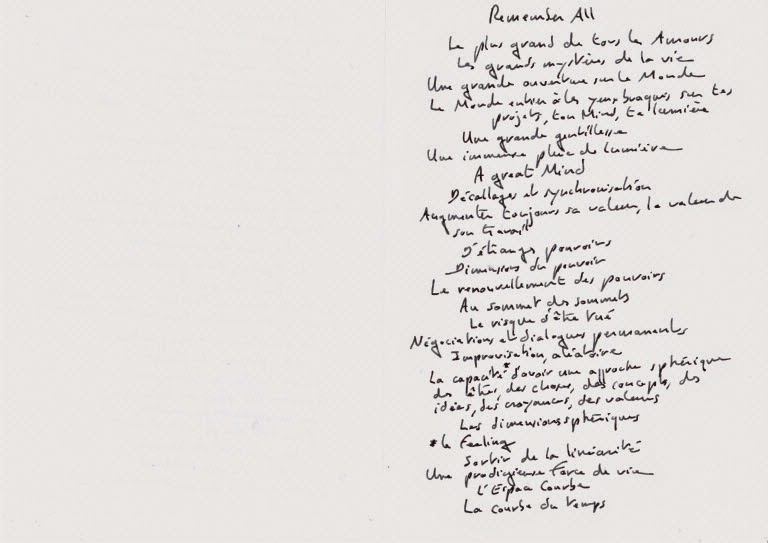 Remember All
Le plus grand de tous les Amours
Les grands mystères de la vie
Une grande ouverture sur le Monde
Le Monde entier à les yeux braqués sur tes
projets, ton Mind, ta lumière
Une grande gentillesse
Une immense pluie de lumière
A great Mind
Décallages et synchronisation
Augmenter toujours sa valeur, la valeur de
son travail
D'étranges pouvoirs
Dimensions du pouvoir
Le renouvellement des pouvoirs
Au sommet des sommets
Le risque d'être tué
Négociations et dialogues permanents
Improvisation, aléatoire
La capacité* d'avoir une approche sphérique
des êtres, des choses, des concepts, des
idées, des croyances, des valeurs
Les dimensions sphériques
*le Feeling
Sortir de la linéarité
Une prodigieuse Force de vie
L'Espace Courbe
La courbe du temps